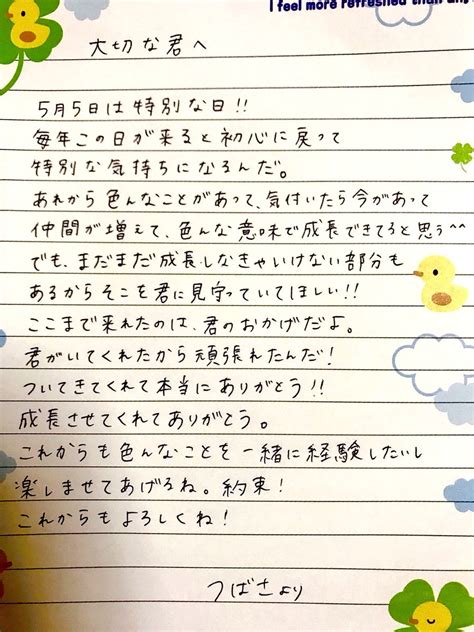 I feel more refreshed than any
大切な君へ
5月5日は特別な日!!
毎年この日が来ると初心に戻って
特別な気持ちになるんだ。
あれから色んなことがあって、気付いたら今があって
仲間が増えて、色んな意味で成長できてると思う^^
でも、まだまだ成長しなきゃいけない部分も
あるからそこを君に見守っていてほしい!!
ここまで来れたのは、君のおかげだよ。
君がいてくれたから頑張れたんだ!
ついてきてくれて本当にありがとう!!
成長させてくれてありがとう。
これからも色んなことを一緒に経験したいし
楽しませてあげるね。約束!
これからもよろしくね!
つばさより